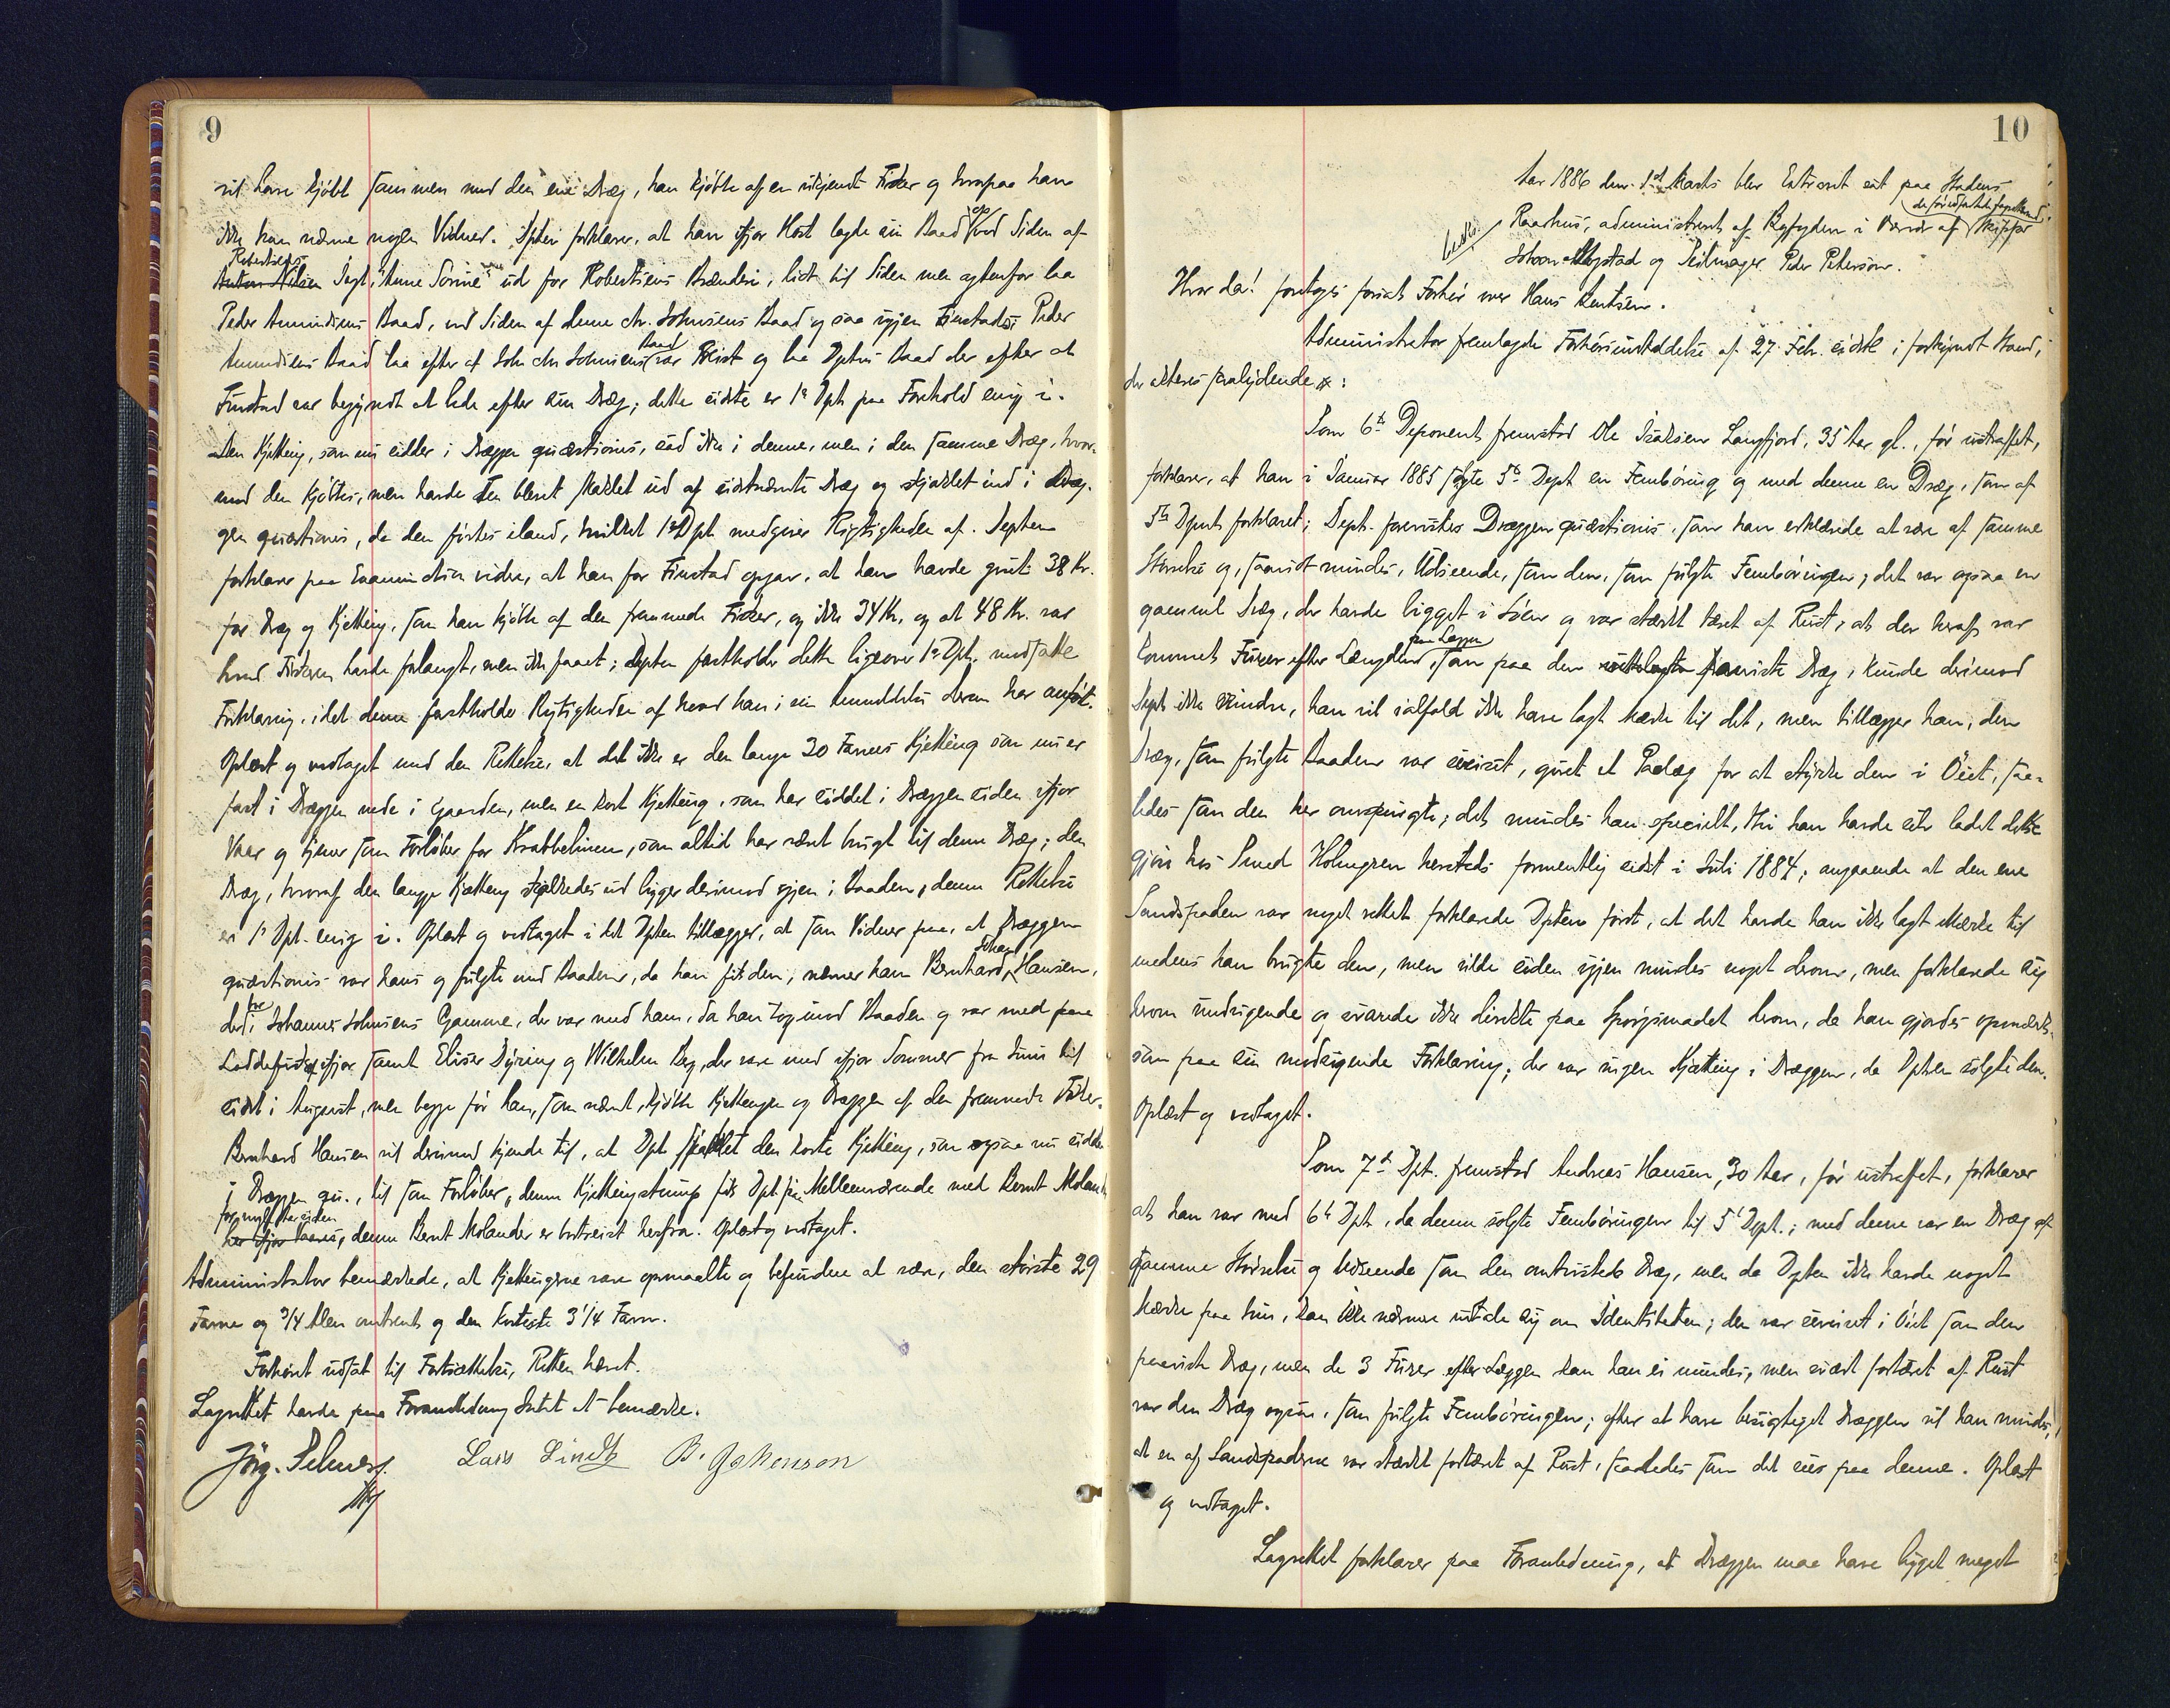 9
vil have kjøbt sammen med den ene Dræg, han kjøbte af en ukjendt Fisker og hvorpaa han
ikke kan nævne nogen Vidner. Dpten forklarer, at han ifjor Høst lagde sin Baad op ved Siden af
Robertsens
Anton Nilsen Jagt, "Anne Sorine" ud for Robertsens Brænderi, lidt til Siden men agtenfor laa
Peder Amundsens Baad, ved Siden af denne Chr. Johnsens Baad og saa igjen Finstads; Peder
Amundsens Baad laa efter at Joh. Chr. Johnsens Baad var reist og laa Dptens Baad der efter at
Finstad var begyndt at lede efter sin Dræg; dette sidste er 1ste Dpt paa Forehold enig i.
Den Kjetting, som nu sidder i Dræggen quæstionis, sad ikke i denne, men i den samme Dræg, hvor-
med den kjøbtes, men havde den blevet skaklet ud af sidstnævnte Dræg og skjaklet ind i Dræg-
gen quæstionis, da den førtes iland, hvilket 1ste Dpt medgiver Rigtigheden af. Depten
forklarer paa Examination videre, at han for Finstad opgav, at han havde givet 38 Kr.
for Dræg og Kjetting, som han kjøbte af den fremmede Fisker, og ikke 34 Kr, og at 48 Kr. var
hvad Fiskeren havde forlangt, men ikke faaet; Depten fastholder dette ligeover 1ste Dpt. modsatte
Forklaring, idet denne fastholder Rigtigheden af hvad han i sin Anmeldelse derom har anført.
Oplæst og vedtaget med den Rettelse, at det ikke er den lange 30 Favnes Kjetting som nu er
fast i Dræggen nede i Gaarden, men en kort Kjetting, som har siddet i Dræggen siden ifjor
Vaar og tjener som Forløber for Krabbelinen, som altid har været brugt til denne Dræg; den
Dræg, hvoraf den lange Kjetting skjakledes ud ligger derimod igjen i Baaden, denne Rettelse
er 1ste Dpt. enig i. Oplæst og vedtaget idet Dpten tillægger, at som Vidner paa, at Dræggen
quæstionis var hans og fulgte med Baaden, da han fik den, nævner han Bernhard Johan Hansen,
der bor i Johannes Johnsens Gamme, der var med ham, da han tog imod Baaden og var med paa
Loddefiske ifjor samt Eliser Dyring og Wilhelm Berg, der vare med ifjor Sommer fra Juni til
sidst i August, men begge før han, som nævnt, kjøbte Kjettingen og Dræggen af den fremmede Fisker.
Bernhard Hansen vil derimod kjende til, at Dpt skjaklet den korte Kjetting, som ogsaa nu sidder
i Dræggen qu., til som Forløber, denne Kjettingstump fik Dpt. paa Mellemværende med Bernt Molander
for nogle Aar siden
her ifjor Vaares, denne Bernt Molander er bortreist herfra. Oplæst og vedtaget.
Administrator bemærkede, at Kjettingerne vare opmaalte og befundne at være, den største 29
Favne og 3/4 Alen omtrent og den korteste 3 1/4 Favn.
Forhøret udsat til Fortsættelse, Retten hævet.
Lagrettet havde paa Foranledning Intet at bemærke.
Jörg. Selmer
Lars Lind B. Johenson
10
Aar 1886 den 1ste Marts blev Extraret sat paa Stadens
Raadhus, administreret af Byfogden i Overvær af de for Edfæstede fagælland Skipper
Johan Mystad og Seilmager Peder Peterson.
Hvor da! foretoges forsat Forhør over Hans Bentsen.
Administrator fremlagde Forhørsindstillelse af 27. Febr. sidstl. i forkyndt Stand,
der akteres saalydende *:
Som 6te Deponent fremstod Ole Isaksen Langfjord, 35 Aar gl., før ustraffet,
forklarer, at han i Januar 1885 solgte 5te Dept en Fembøring og med denne en Dræg, som af
5te Dpnt forklaret; Dept. forevistes Dræggen quæstionis, som han erklærede at være af samme
Størrelse og, saavidt mindes, Udseende, som den, som fulgte Fembøringen; det var ogsaa en
gammel Dræg, der havde ligget i Søen og var stærkt tæret af Rust, at der heraf var
kommet Furer efter Længden paa Leggen, som paa den paaviste Dræg, kunde derimod
Dept. ikke erindre, han vil ialfald ikke have lagt Mærke til det, men tillægger han, den
Dræg, som fulgte Baaden var sveiset, givet et Paalæg for at styrke den i Öiet, saa-
ledes som den her omspurgte; det mindes han specielt, thi han havde selv ladet dette
gjøre hos Smed Holmgren hersteds formentlig sidst i Juli 1884; angaaende at den ene
Sandspaden var noget rettet forklarede Dpten først, at det havde han ikke lagt Mærke til
medens han brugte den, men vilde siden igjen mindes noget derom, men forklarede sig
herom undvigende og svarede ikke direkte paa Spørgsmaalet herom, da han gjordes opmærk-
som paa sin modsigende Forklaring; der var ingen Kjætting i Dræggen, da Dpten solgte den.
Oplæst og vedtaget.
Som 7de Dpt. fremstod Andreas Hansen, 30 Aar, før ustraffet, forklarer
at han var med 6te Dpt, da denne solgte Fembøringen til 5te Dpt.; med denne var en Dræg af
samme Størrelse og Udseende som den omtvistede Dræg, men da Dpten ikke havde noget
Mærke paa hin, kan ikke nærmere udtale sig om Identiteten; den var sveiset i Öiet som den
paaviste Dræg, men de 3 Furer efter Leggen kan han ei mindes, men svært fortæret af Rust
var den Dræg ogsaa, som fulgte Fembøringen; efter at have besigtiget Dræggen vil han mindes,
at en af Sandspaderne var stærkt fortæret af Rust, saaledes som det sees paa denne. Oplæst
og vedtaget.
Lagrettet forklarer paa Foranledning, at Dræggen maa have ligget meget